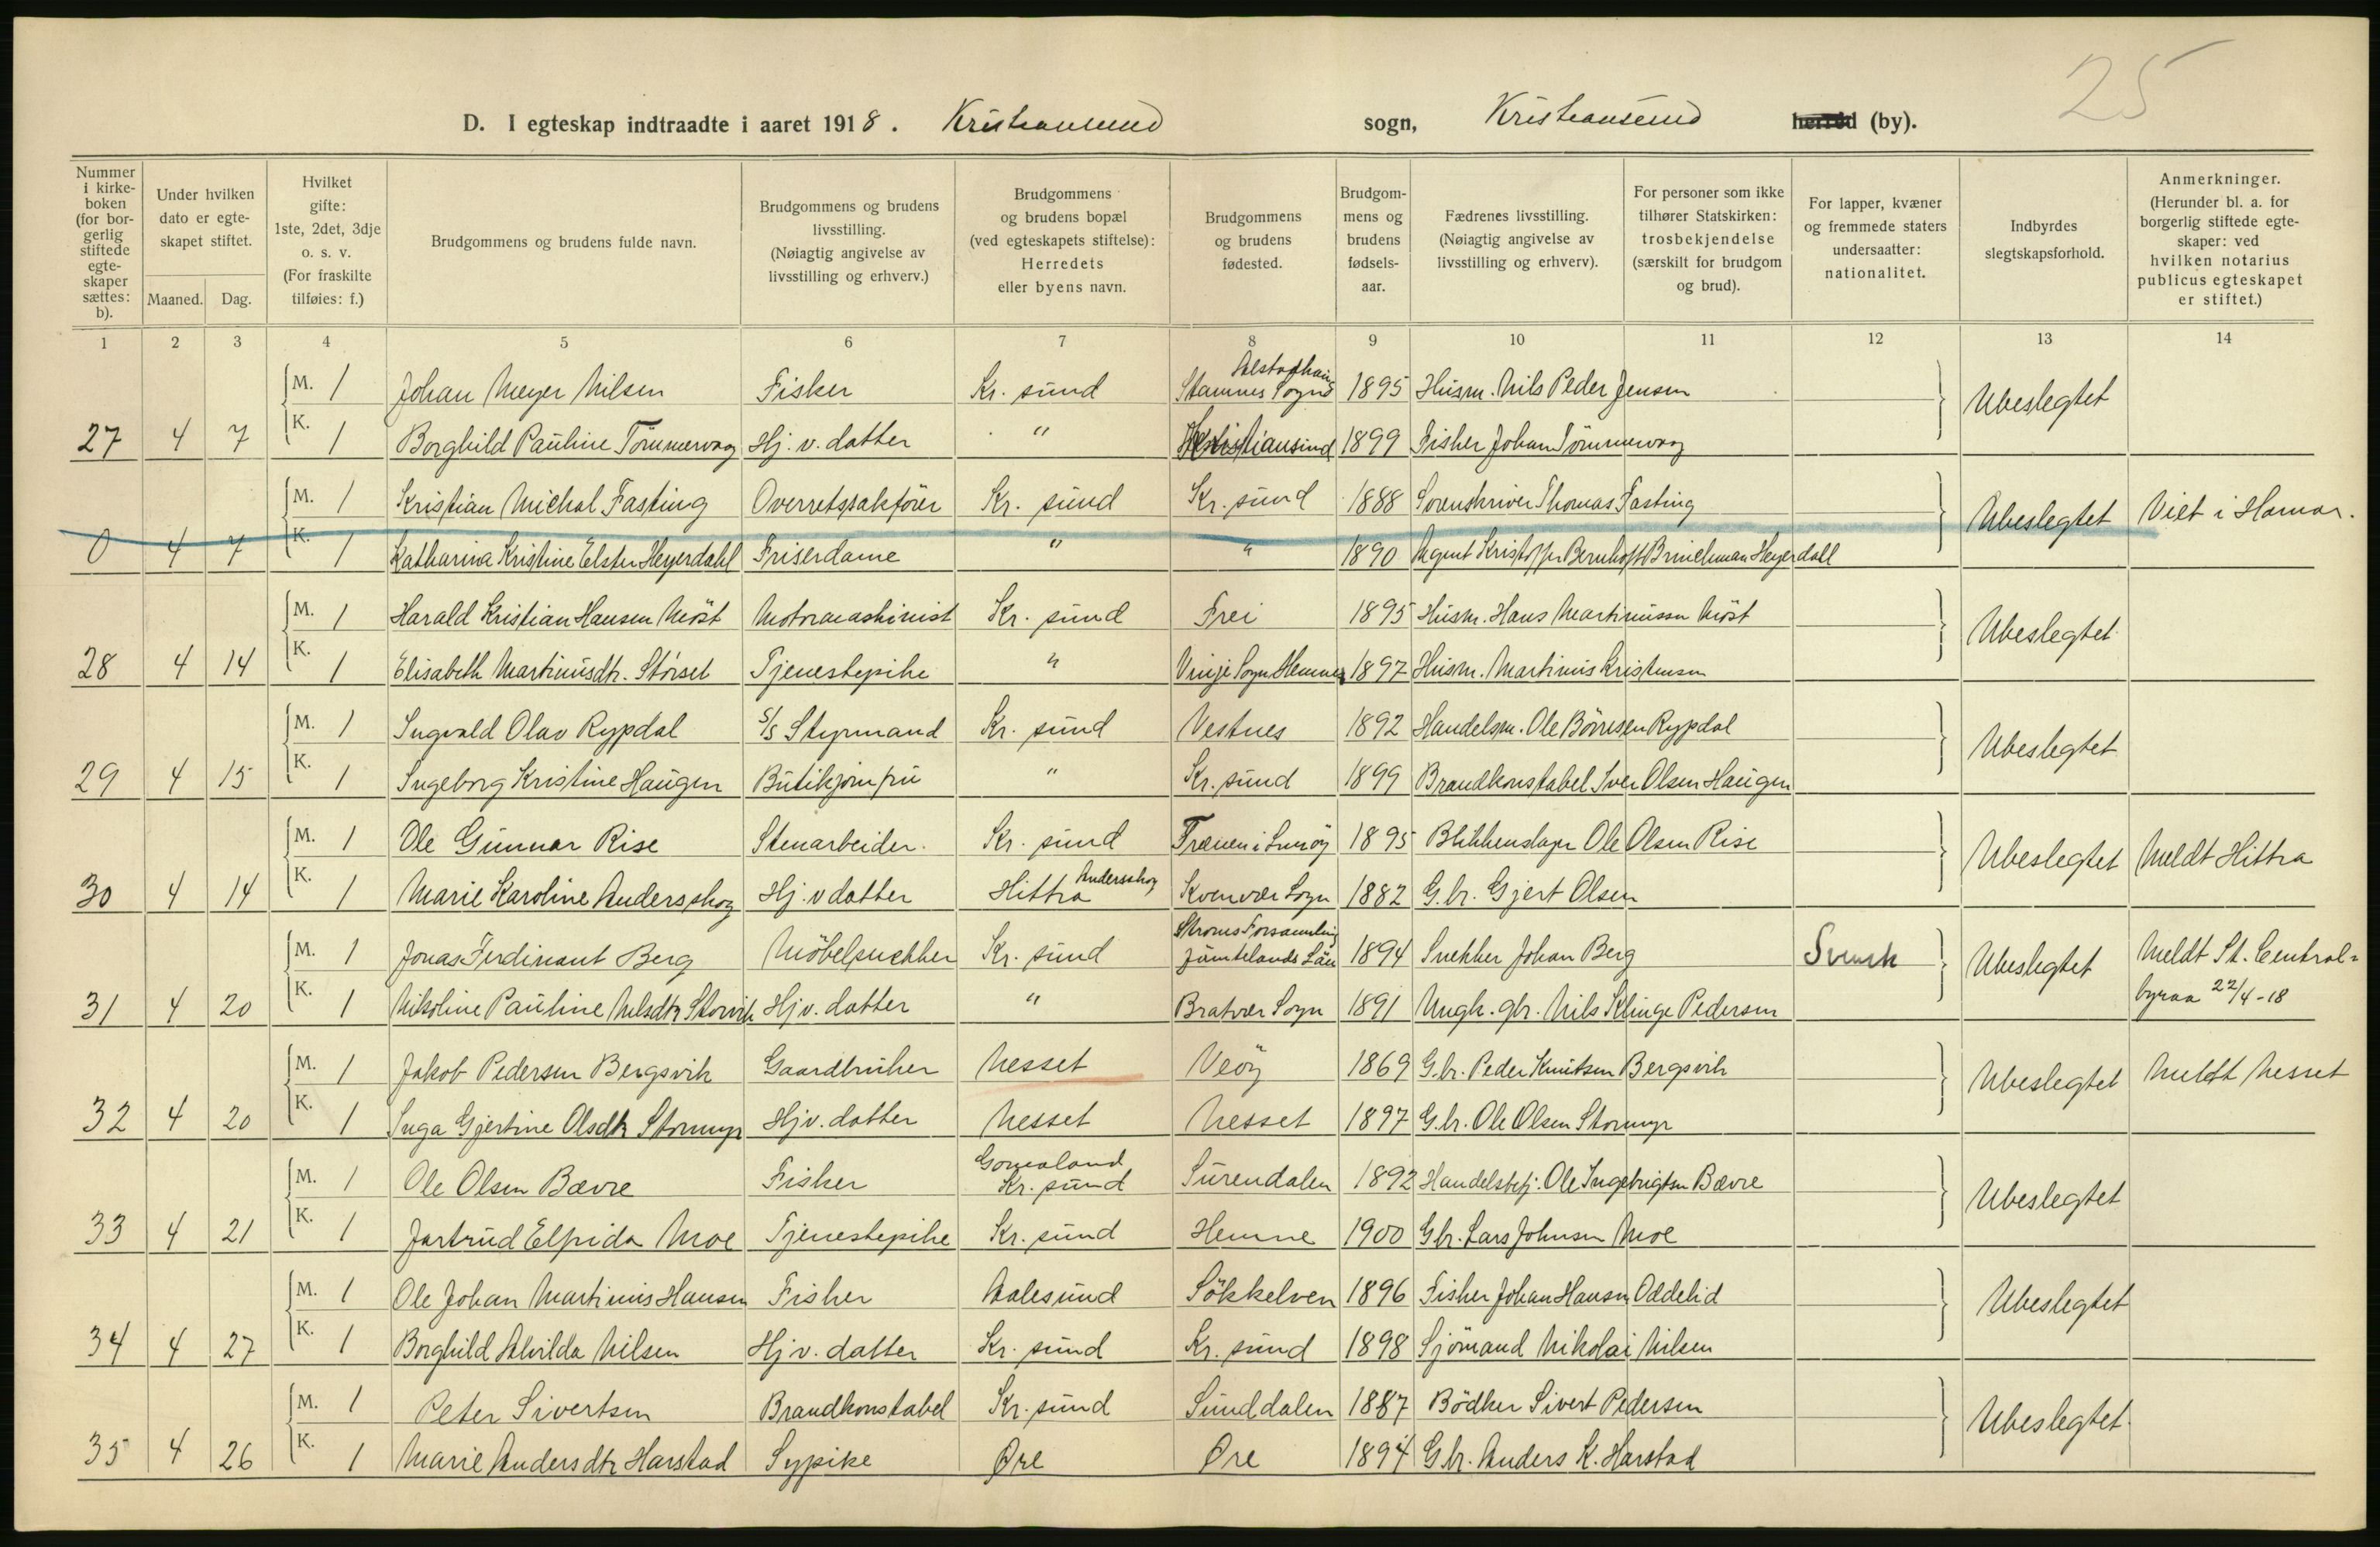 25
D. I egteskap indtraadte i aaret 1918. Kristiansund sogn, Kristiansund herred (by).
Nummer i kirke-boken (for bor-gerlig stiftede egte-skaper sættes: b).
Under hvilken dato er egte-skapet stiftet.
Maaned. Dag.
Hvilket gifte: 1ste, 2det, 3dje o. s. v. (For fraskilte tilføies: f.)
Brudgommens og brudens fulde navn.
Brudgommens og brudens livsstilling. (Nøiagtig angivelse av livsstilling og erhverv.)
Brudgommens og brudens bopæl (ved egteskapets stiftelse): Herredets eller byens navn.
Brudgommens og brudens fødested.
Brudgom-mens og brudens fødsels-aar.
Fædrenes livsstilling. (Nøiagtig angivelse av livsstilling og erhverv).
For personer som ikke tilhører Statskirken: trosbekjendelse (særskilt for brudgom og brud).
For lapper, kvæner og fremmede staters undersaatter: nationalitet.
Indbyrdes slegtskapsforhold.
Anmerkninger. (Herunder bl. a. for borgerlig stiftede egte-skaper: ved hvilken notarius publicus egteskapet er stiftet.)
1 2 3 4 5 6 7 8 9 10 11 12 13 14
M. 1 Johan Meyer Nilsen Fisker Kr. sund Alstadhaug Stamnes Sogn 1895 Husm. Nils Peder Jensen Ubeslegtet
27 4 7 K. 1 Borghild Pauline Tömmervag Hj. v. datter " Kristiansund 1899 Fisker Johan Tömmervag
M. 1 Kristian Michal Fasting Overretssakförer Kr. sund Kr. sund 1888 Sorenskriver Thomas Fasting Ubeslegtet Viet i Hamar.
0 4 7 K. 1 Katharina Kristine Elster Heyerdahl Friserdame " " 1890 Agent Kristoffer Bernhoft Brinchman Heyerdall
M. 1 Harald Kristian Hansen Möst Motormaskinist Kr. sund Frei 1895 Husm. Hans Martinussen Möst Ubeslegtet
28 4 14 K. 1 Elisabeth Martinusdtr. Störset Tjenestepike " Vinje Sogn Hemne 1897 Husm. Martinus Kristensen
M. 1 Ingvald Olav Rypdal S/S Styrmand Kr. sund Vestnes 1892 Handelsm. Ole Börresen Rypdal Ubeslegtet
29 4 15 K. 1 Ingeborg Kristine Haugen Butikjomfru " Kr. sund 1899 Brandkonstabel Iver Olsen Haugen
M. 1 Ole Gunnar Rise Stenarbeider. Kr. sund Frænen i Smög 1895 Blikkenslager Ole Olsen Rise Ubeslegtet Meldt Hittra
30 4 14 K. 1 Marie Karoline Andersskog Hj. v datter Hittra Andersskog Kvenvær Sogn 1882 G. br. Gjert Olsen
M. 1 Jonas Ferdinant Berg Möbelsnekker Kr. sund Ströms Forsamling Jämtelands Län 1894 Snekker Johan Berg Svensk Ubeslegtet Meldt St. Central=
31 4 20 K. 1 Nikoline Pauline Nilsdtr Storvik Hj v. datter " Bratvær Sogn 1891 Ungk. gbr. Nils Klinge Pedersen byraa 22/4-18
M. 1 Jakob Pedersen Bergsvik Gaardbruker Nesset Veöy 1869 G. br. Peder Knutsen Bergsvik Ubeslegtet Meldt Nesset
32 4 20 K. 1 Inga Gjertine Olsdtr Stormyr Hj v. datter Nesset Nesset 1897 G. br. Ole Olsen Stormyr
M. 1 Ole Olsen Bævre Fisker Gomaland Kr. sund Surendalen 1892 Handelsbetj. Ole Ingebrigtsen Bævre Ubeslegtet
33 4 21 K. 1 Jartrud Elfrida Moe Tjenestepike Kr. sund Hemne 1900 G br. Lars Johnsen Moe
M. 1 Ole Johan Martinus Hansen Fisker Aalesund Sökkelven 1896 Fisker Johan Hansen Oddelid Ubeslegtet
34 4 27 K. 1 Borghild Alvilda Nilsen Hj v. datter Kr. sund Kr. sund 1898 Sjömand Nikolai Nilsen
M. 1 Peter Sivertsen Brandkonstabel Kr. sund Sunddalen 1887 Bödker Sivert Pedersen Ubeslegtet
35 4 26 K. 1 Marie Andersdtr Harstad Sypike Øre Øre 1894 G br. Anders K. Harstad